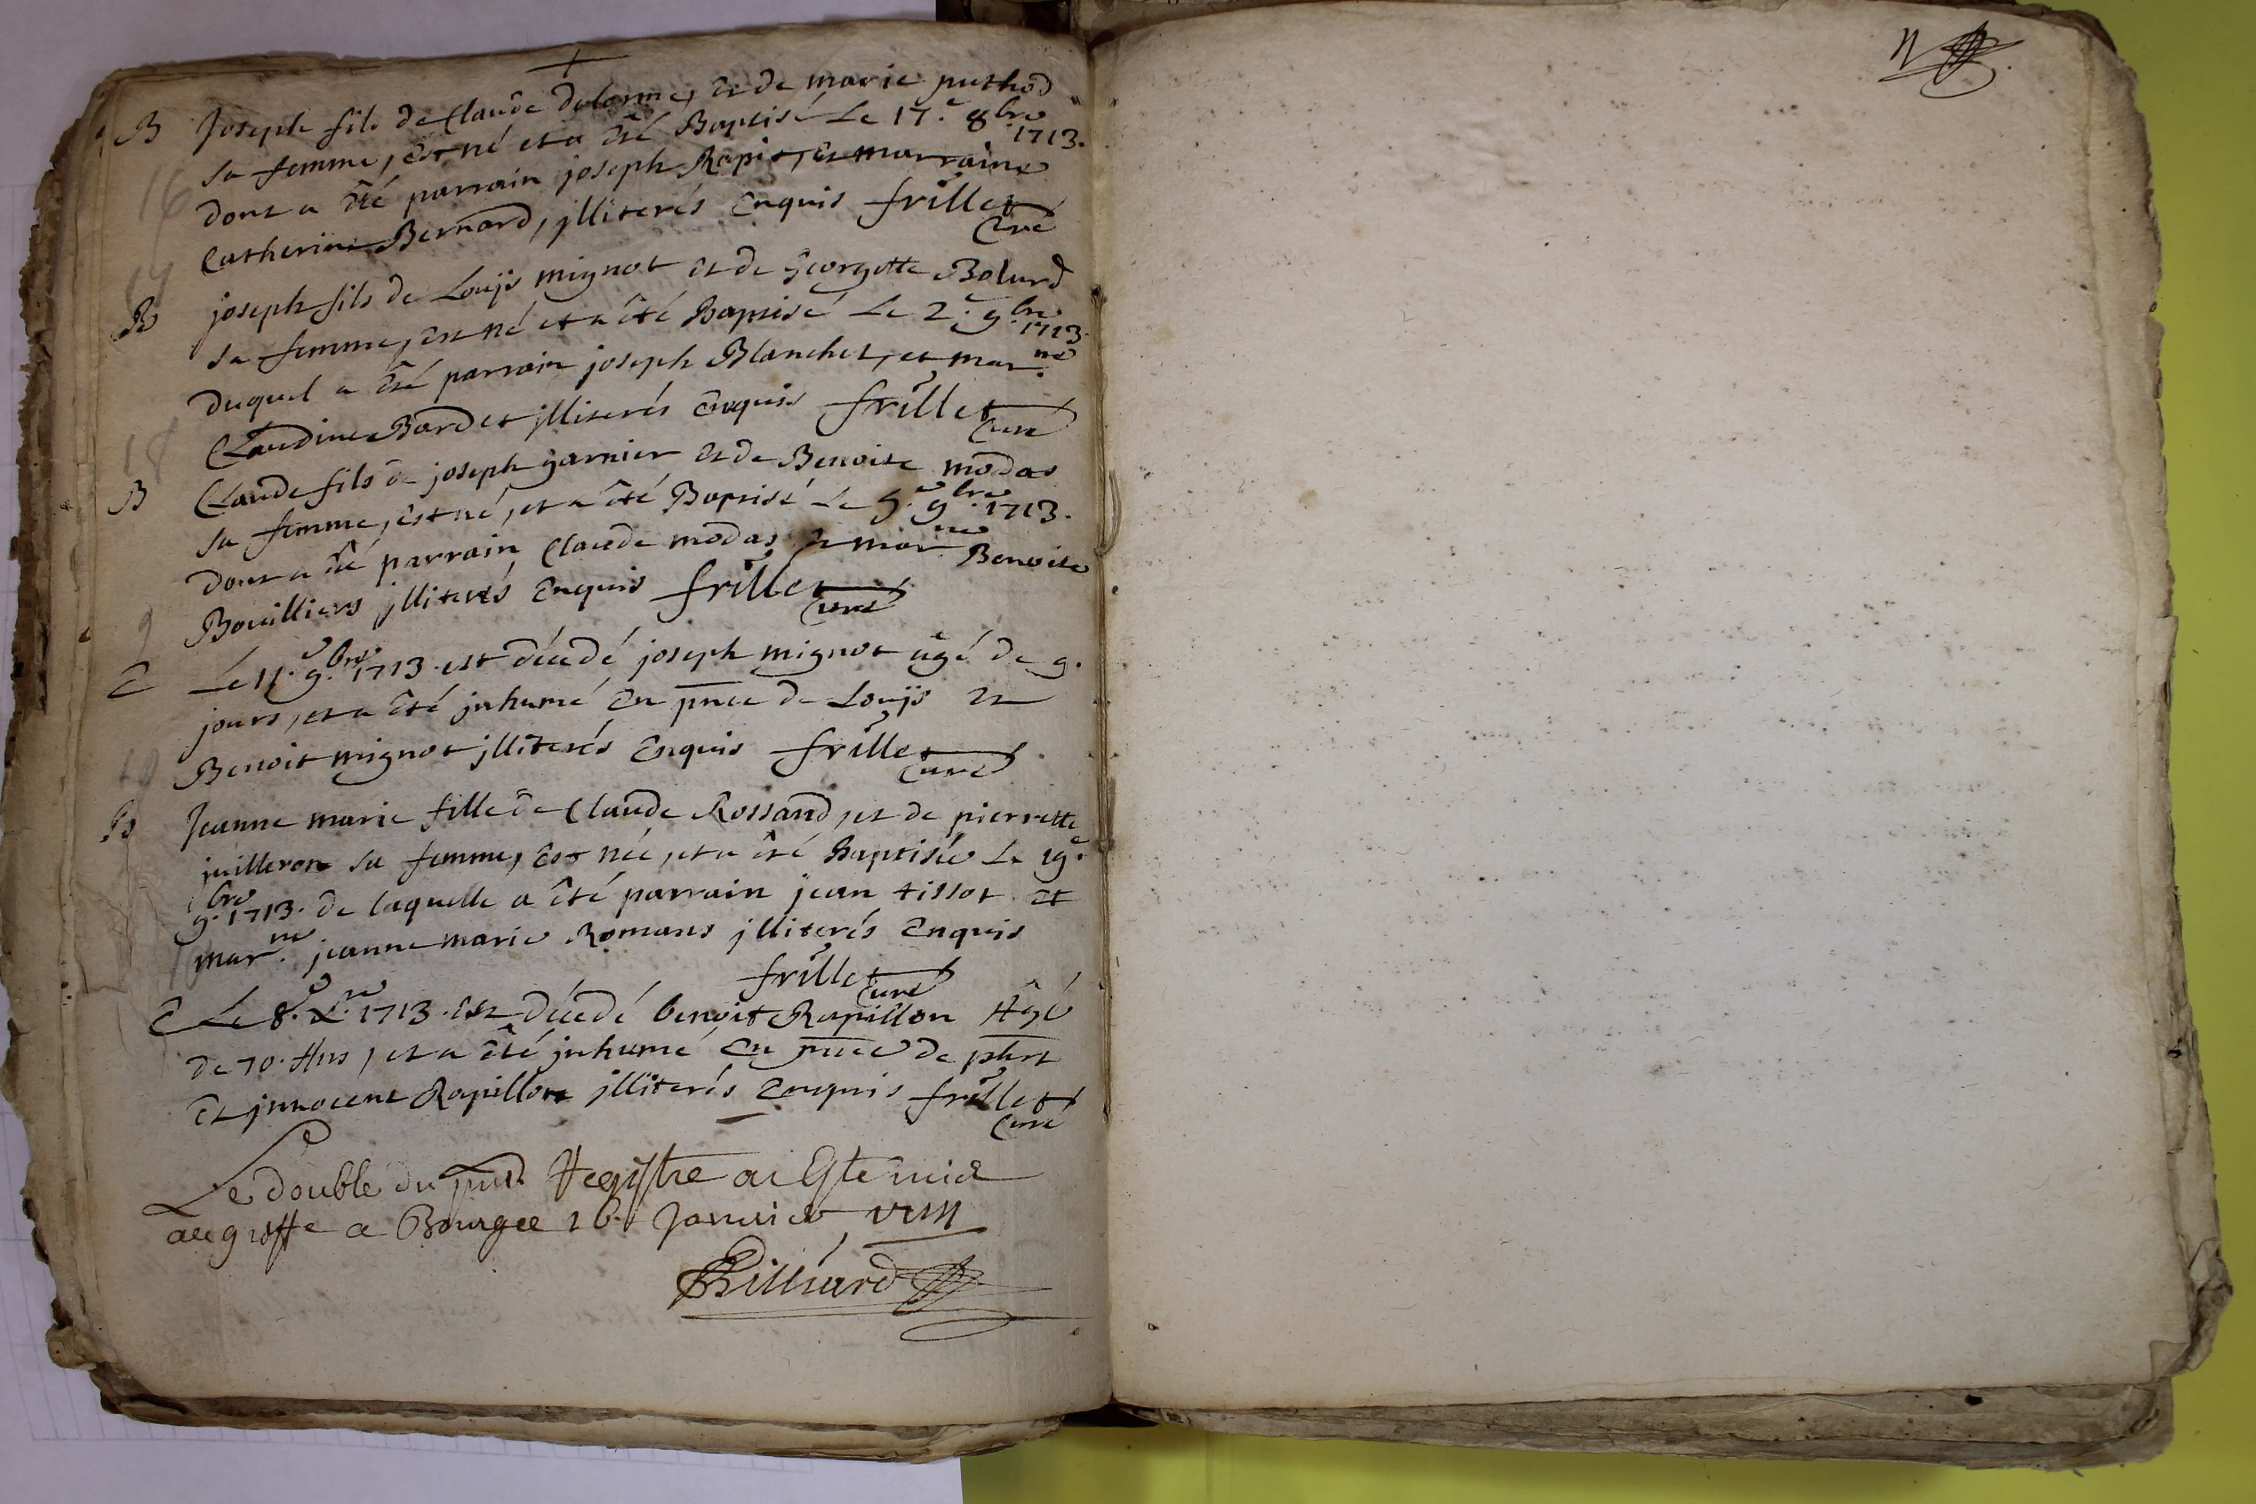 +
B Joseph fils de Claude delorme, et de marie puthod
sa femme, est né et a été Baptisé Le 17.e 8.bre 1713.
16
dont a été parrain joseph Rapit, et marraine
Catherine Bernard, jlliterés Enquis frillet Curé
17
B joseph fils de Louÿs mignot et de georgette Bolurd
sa femme, est né et a été Baptisé Le 2.e 9.bre 1713.
duquel a été parrain joseph Blanchet, et mar.ne
Claudine Bardet jlliterés Enquis frillet Curé
18
B Claude fils de joseph garnier et de Benoite modas
sa femme, est né, et a été Baptisé Le 5.e 9.bre 1713.
dont a été parrain Claude modas et mar.ne Benoite
Bouilliers jlliterés Enquis frillet Curé
9
E Le 11.e 9.bre 1713. est décédé joseph mignot âgé de 9.
jours, et a été jnhumé En pnce de Louÿs et
Benoit mignot jlliterés Enquis frillet Curé
19
B Jeanne marie fille de Claude Rossand, et de pierrette
juilleron sa femme, est née, et a été Baptisée Le 19.e
9.bre 1713. de laquelle a été parrain jean tissot et
mar.ne jeanne marie Romans jlliterés Enquis
frillet Curé
E Le 8.e X.re 1713. est décédé benoit Rapillon Agé
de 70. Ans, et a été jnhumé En pnce de phrt
Et jnnocent Rapillon jlliterés Enquis frillet Curé
Le double du pnt Regystre a Esté mis
au greffe a Bourg ce 16 Janvier
Billiard
11